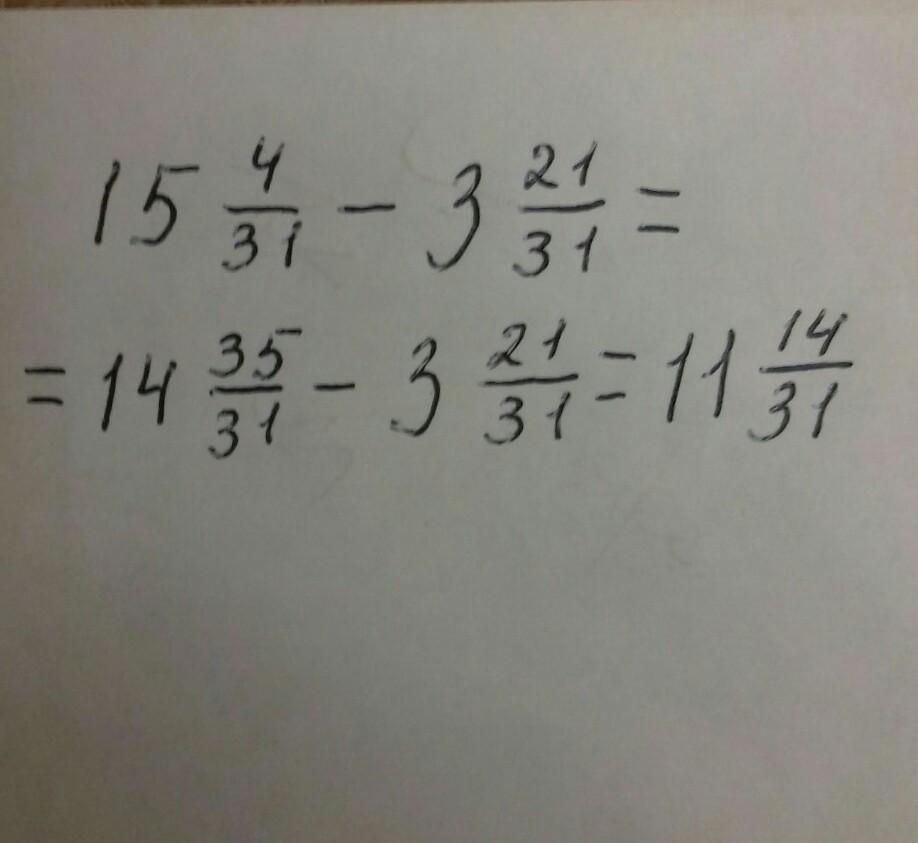 15 4/31 - 3 21/31 =
= 14 35/31 - 3 21/31 = 11 14/31